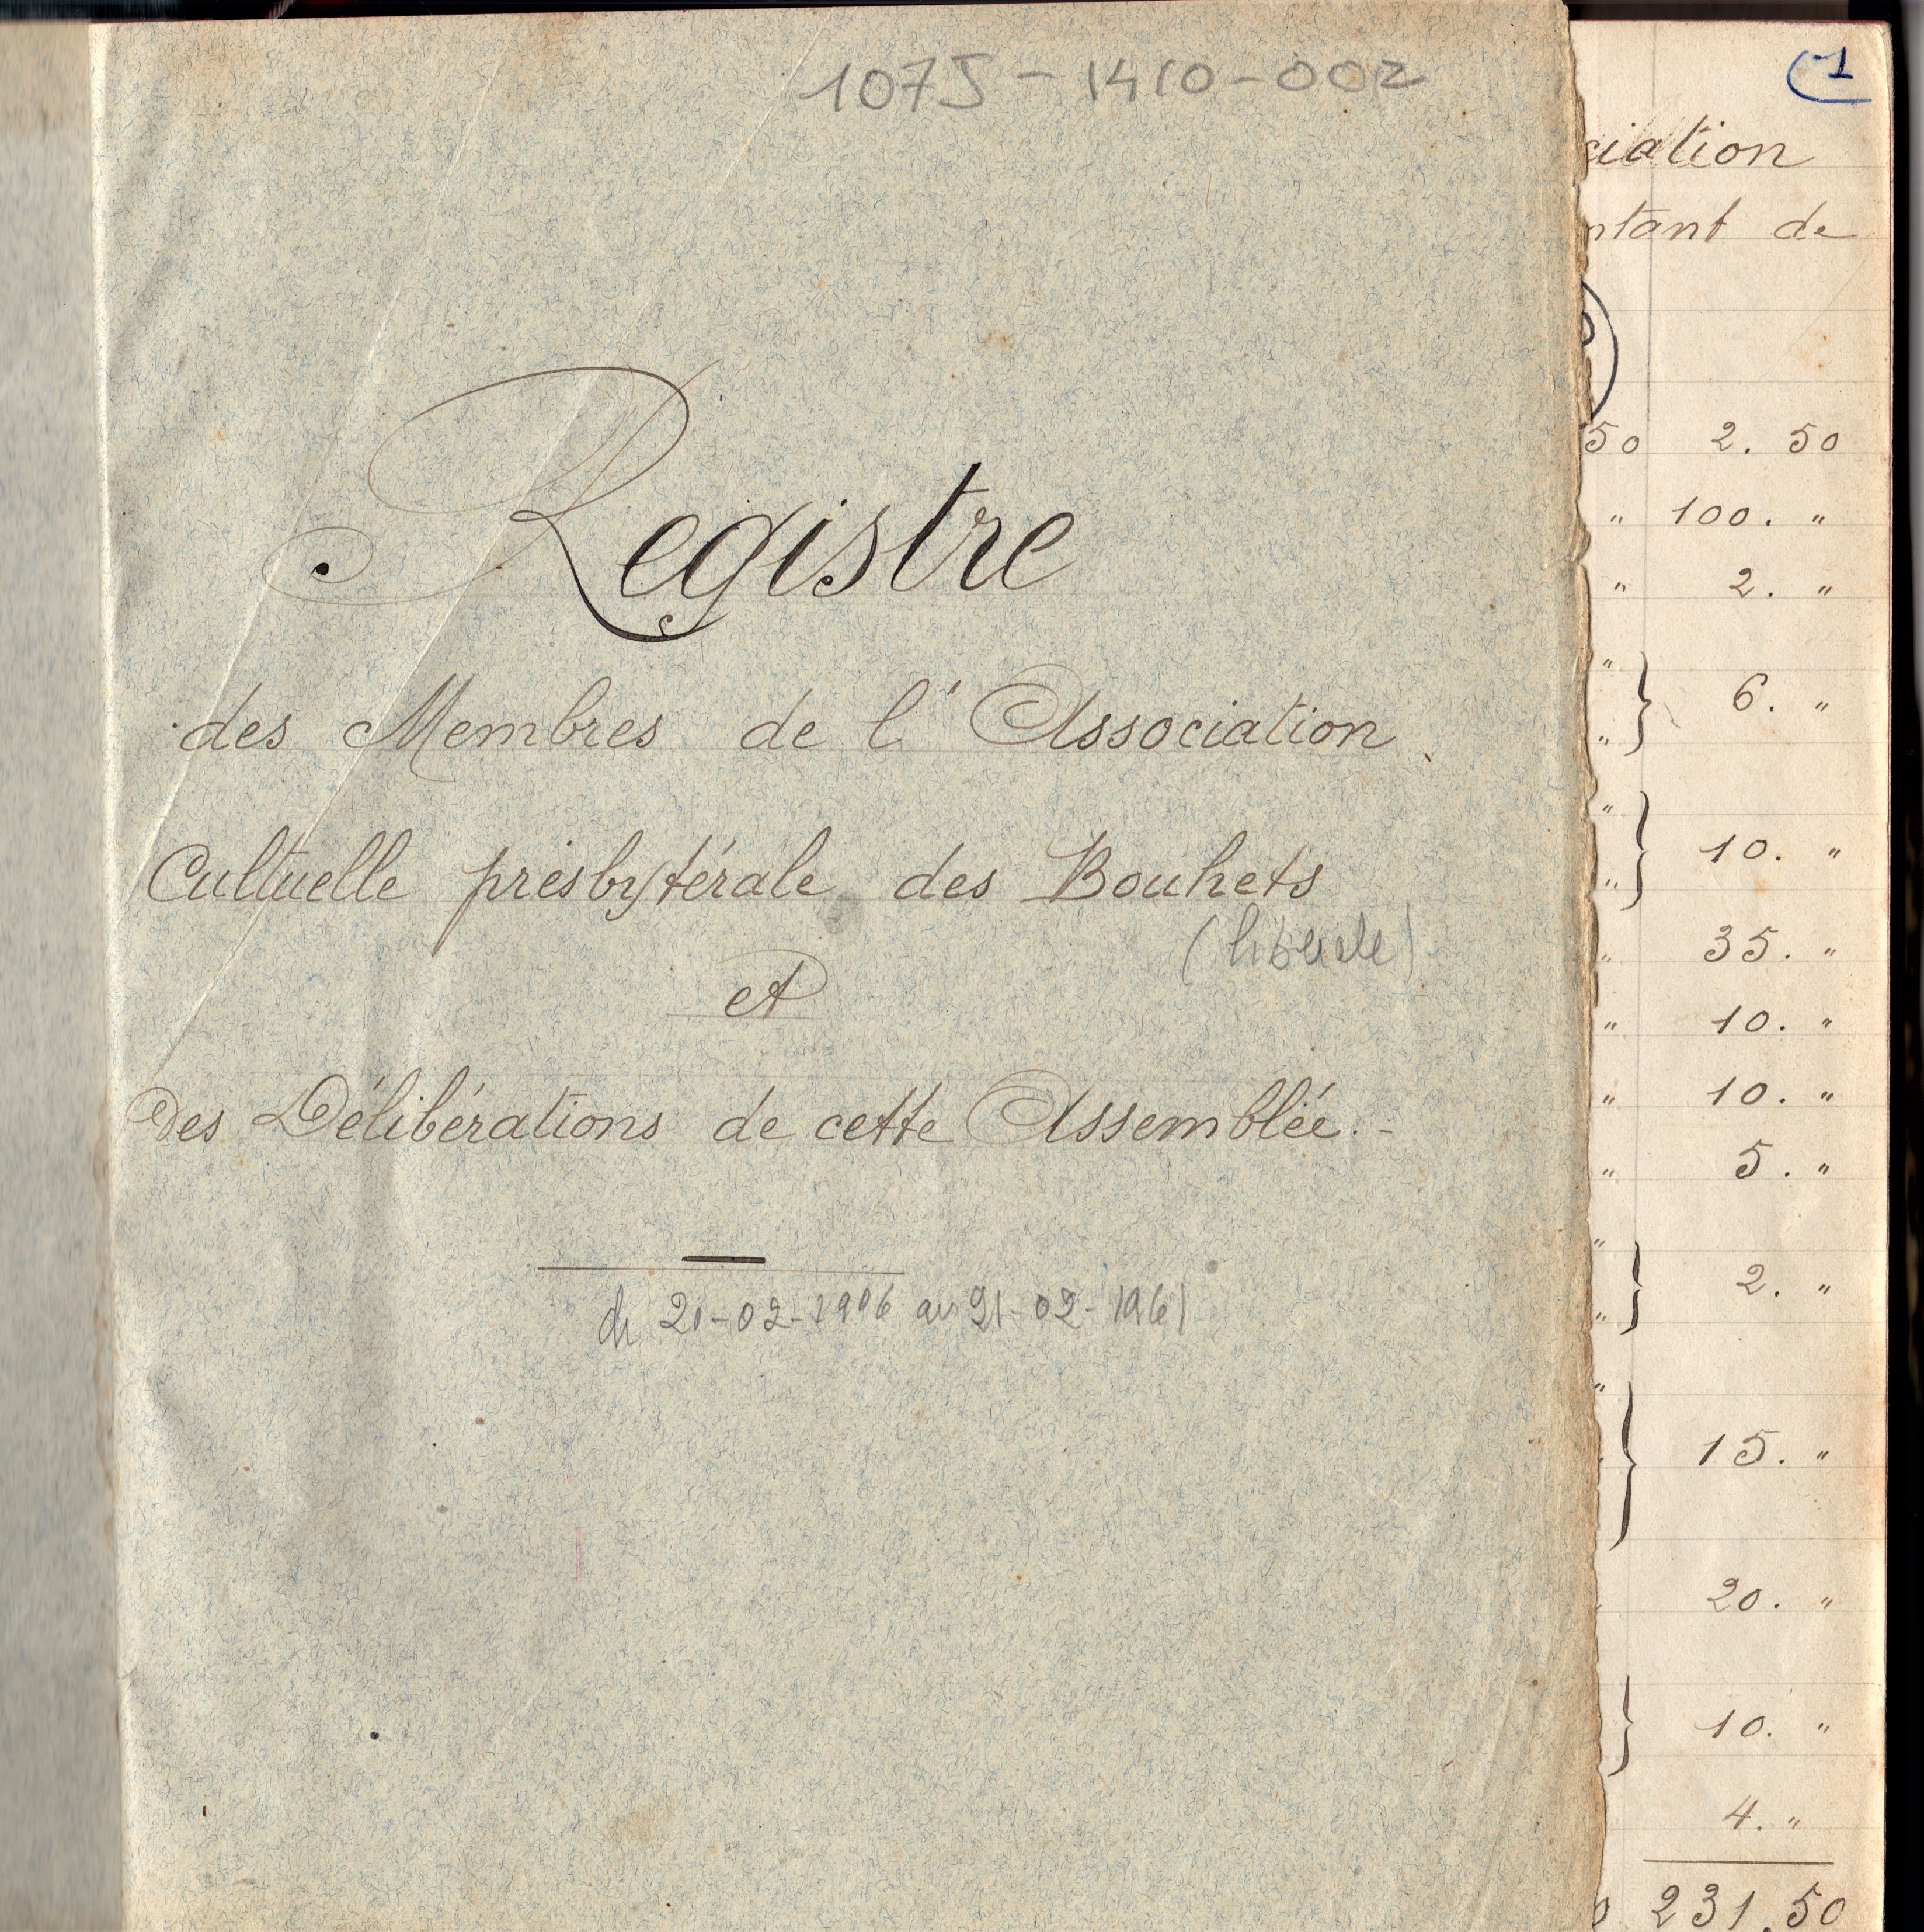 107J - 1410 - 002
Registre
des Membres de l'Association
Cultuelle presbytérale des Bouhets
(libérale)
et
Des Délibérations de cette Assemblée.-
du 20-02-1906 au 21-02-1961
1
ciation
ntant de
50 2. 50
" 100. "
" 2. "
"
} 6. "
"
"
} 10. "
"
" 35. "
" 10. "
" 10. "
" 5. "
"
} 2. "
"
"
} 15. "
20. "
} 10. "
4. "
0 231.50